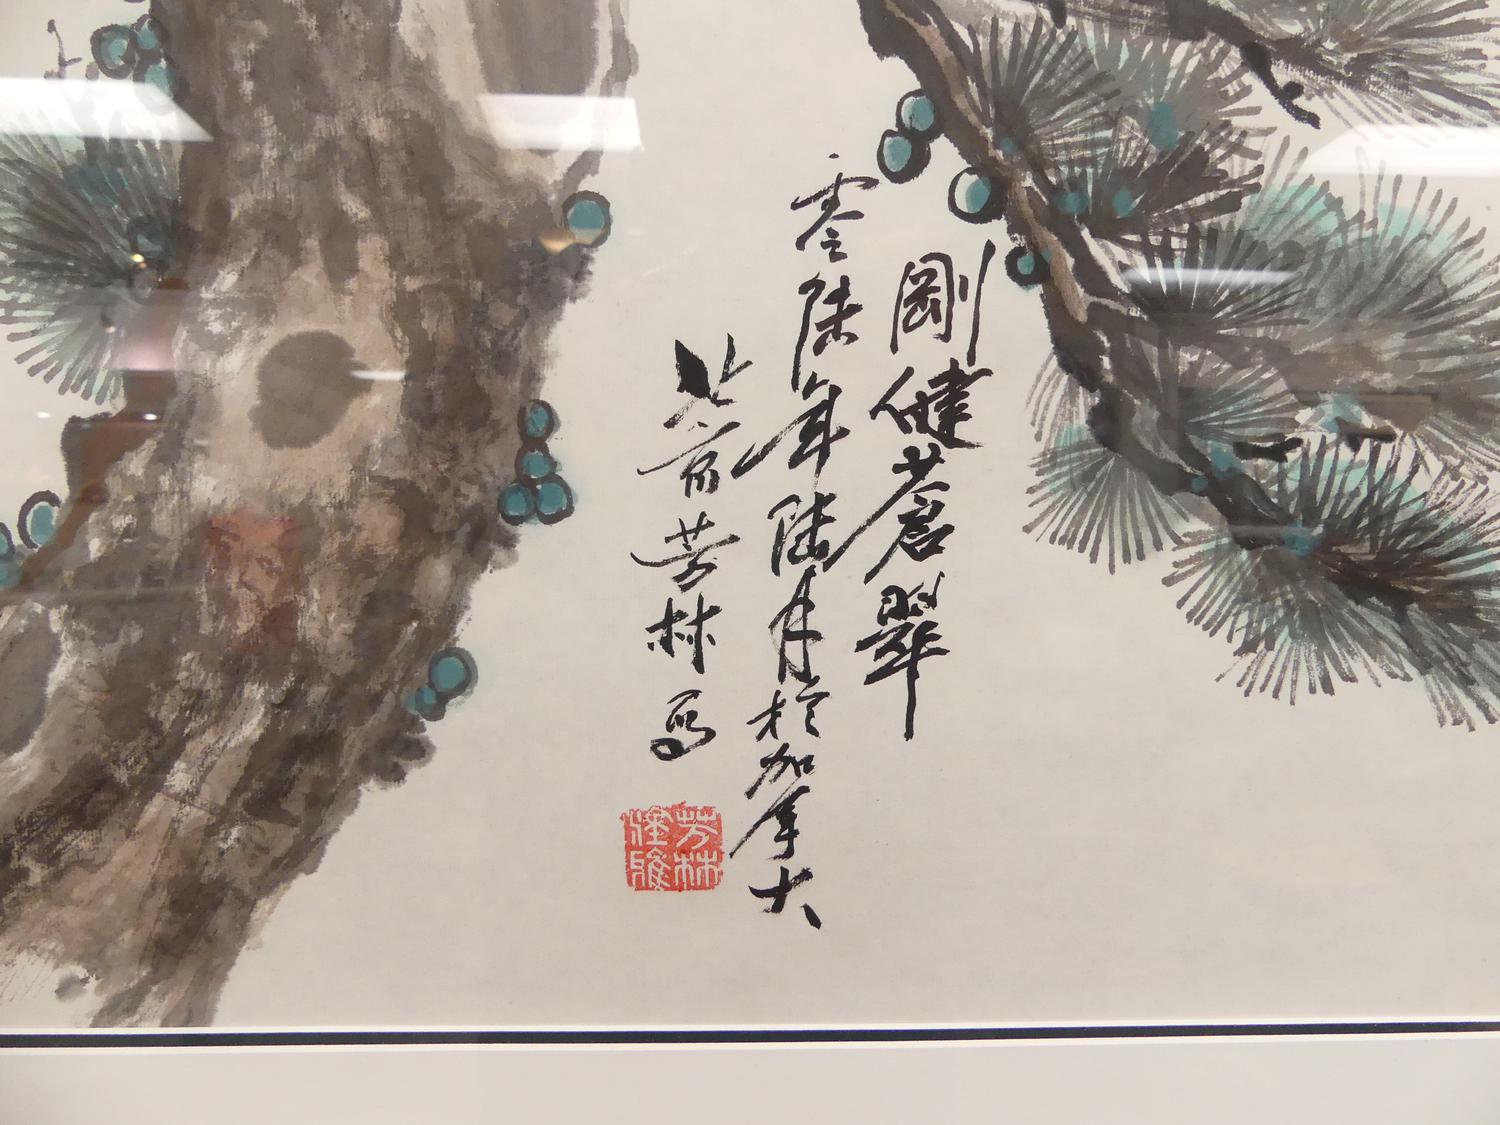 剛健蒼翠
零陸年陸月於加拿大
北京芳林写
芳林